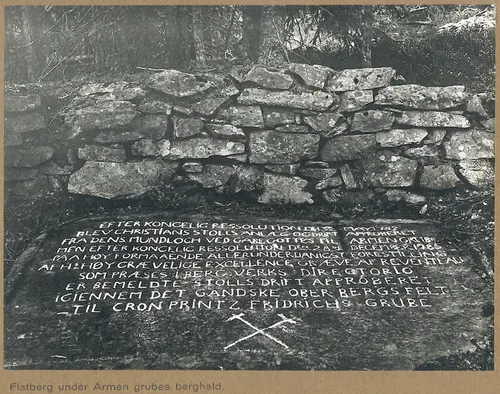 EFTER KONGELIG RESSOLUTION DEN
BLEV CHRISTIANS STOLLS ANLÆG OG DRIFT
FRA DENS MUNDLOCH VED GABE GOTTES TIL ARMEN GRUBE
MEN EFTER KONGELIG RESSOLUTION DEN 28 DECEMBR 1786
PAA HØY FORMAAENDE ALLERUNDERDANIGST FORESTILLING
AF HS HØY GRÆVELIGE EXCELLENCE GRÆVE AF REVENTLAU
SOM PRÆSES I BERG VERKS DIRECTORIO
ER BEMELDTE STOLLS DRIFT APPROBERET
IGIENNEM DET GANDSKE OBER BERGS FELT
TIL CRON PRINTZ FRIDRICHS GRUBE
Flatberg under Armen grubes berghald.